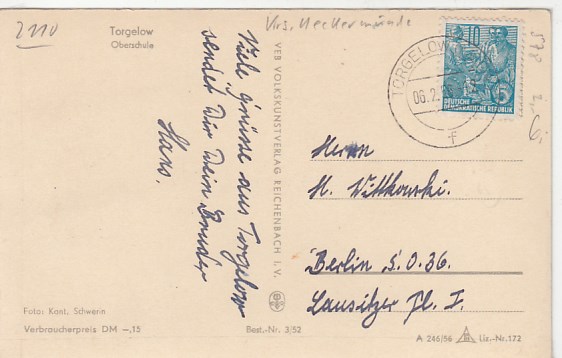 2110
Torgelow
Oberschule
Krs. Ueckermünde
Viele Grüsse aus Torgelow
sendet Dir Dein Bruder
Hans.
VEB VOLKSKUNSTVERLAG REICHENBACH I. V.
TORGELOW
06.2.
f
10
5
DEUTSCHE
DEMOKRATISCHE REPUBLIK
Herrn
H. Wittkowski.
Berlin S.O. 36.
Lausitzer Pl. I.
Foto: Kont, Schwerin
Verbraucherpreis DM –,15
Best.-Nr. 3/52
A 246/56 Liz.-Nr. 172